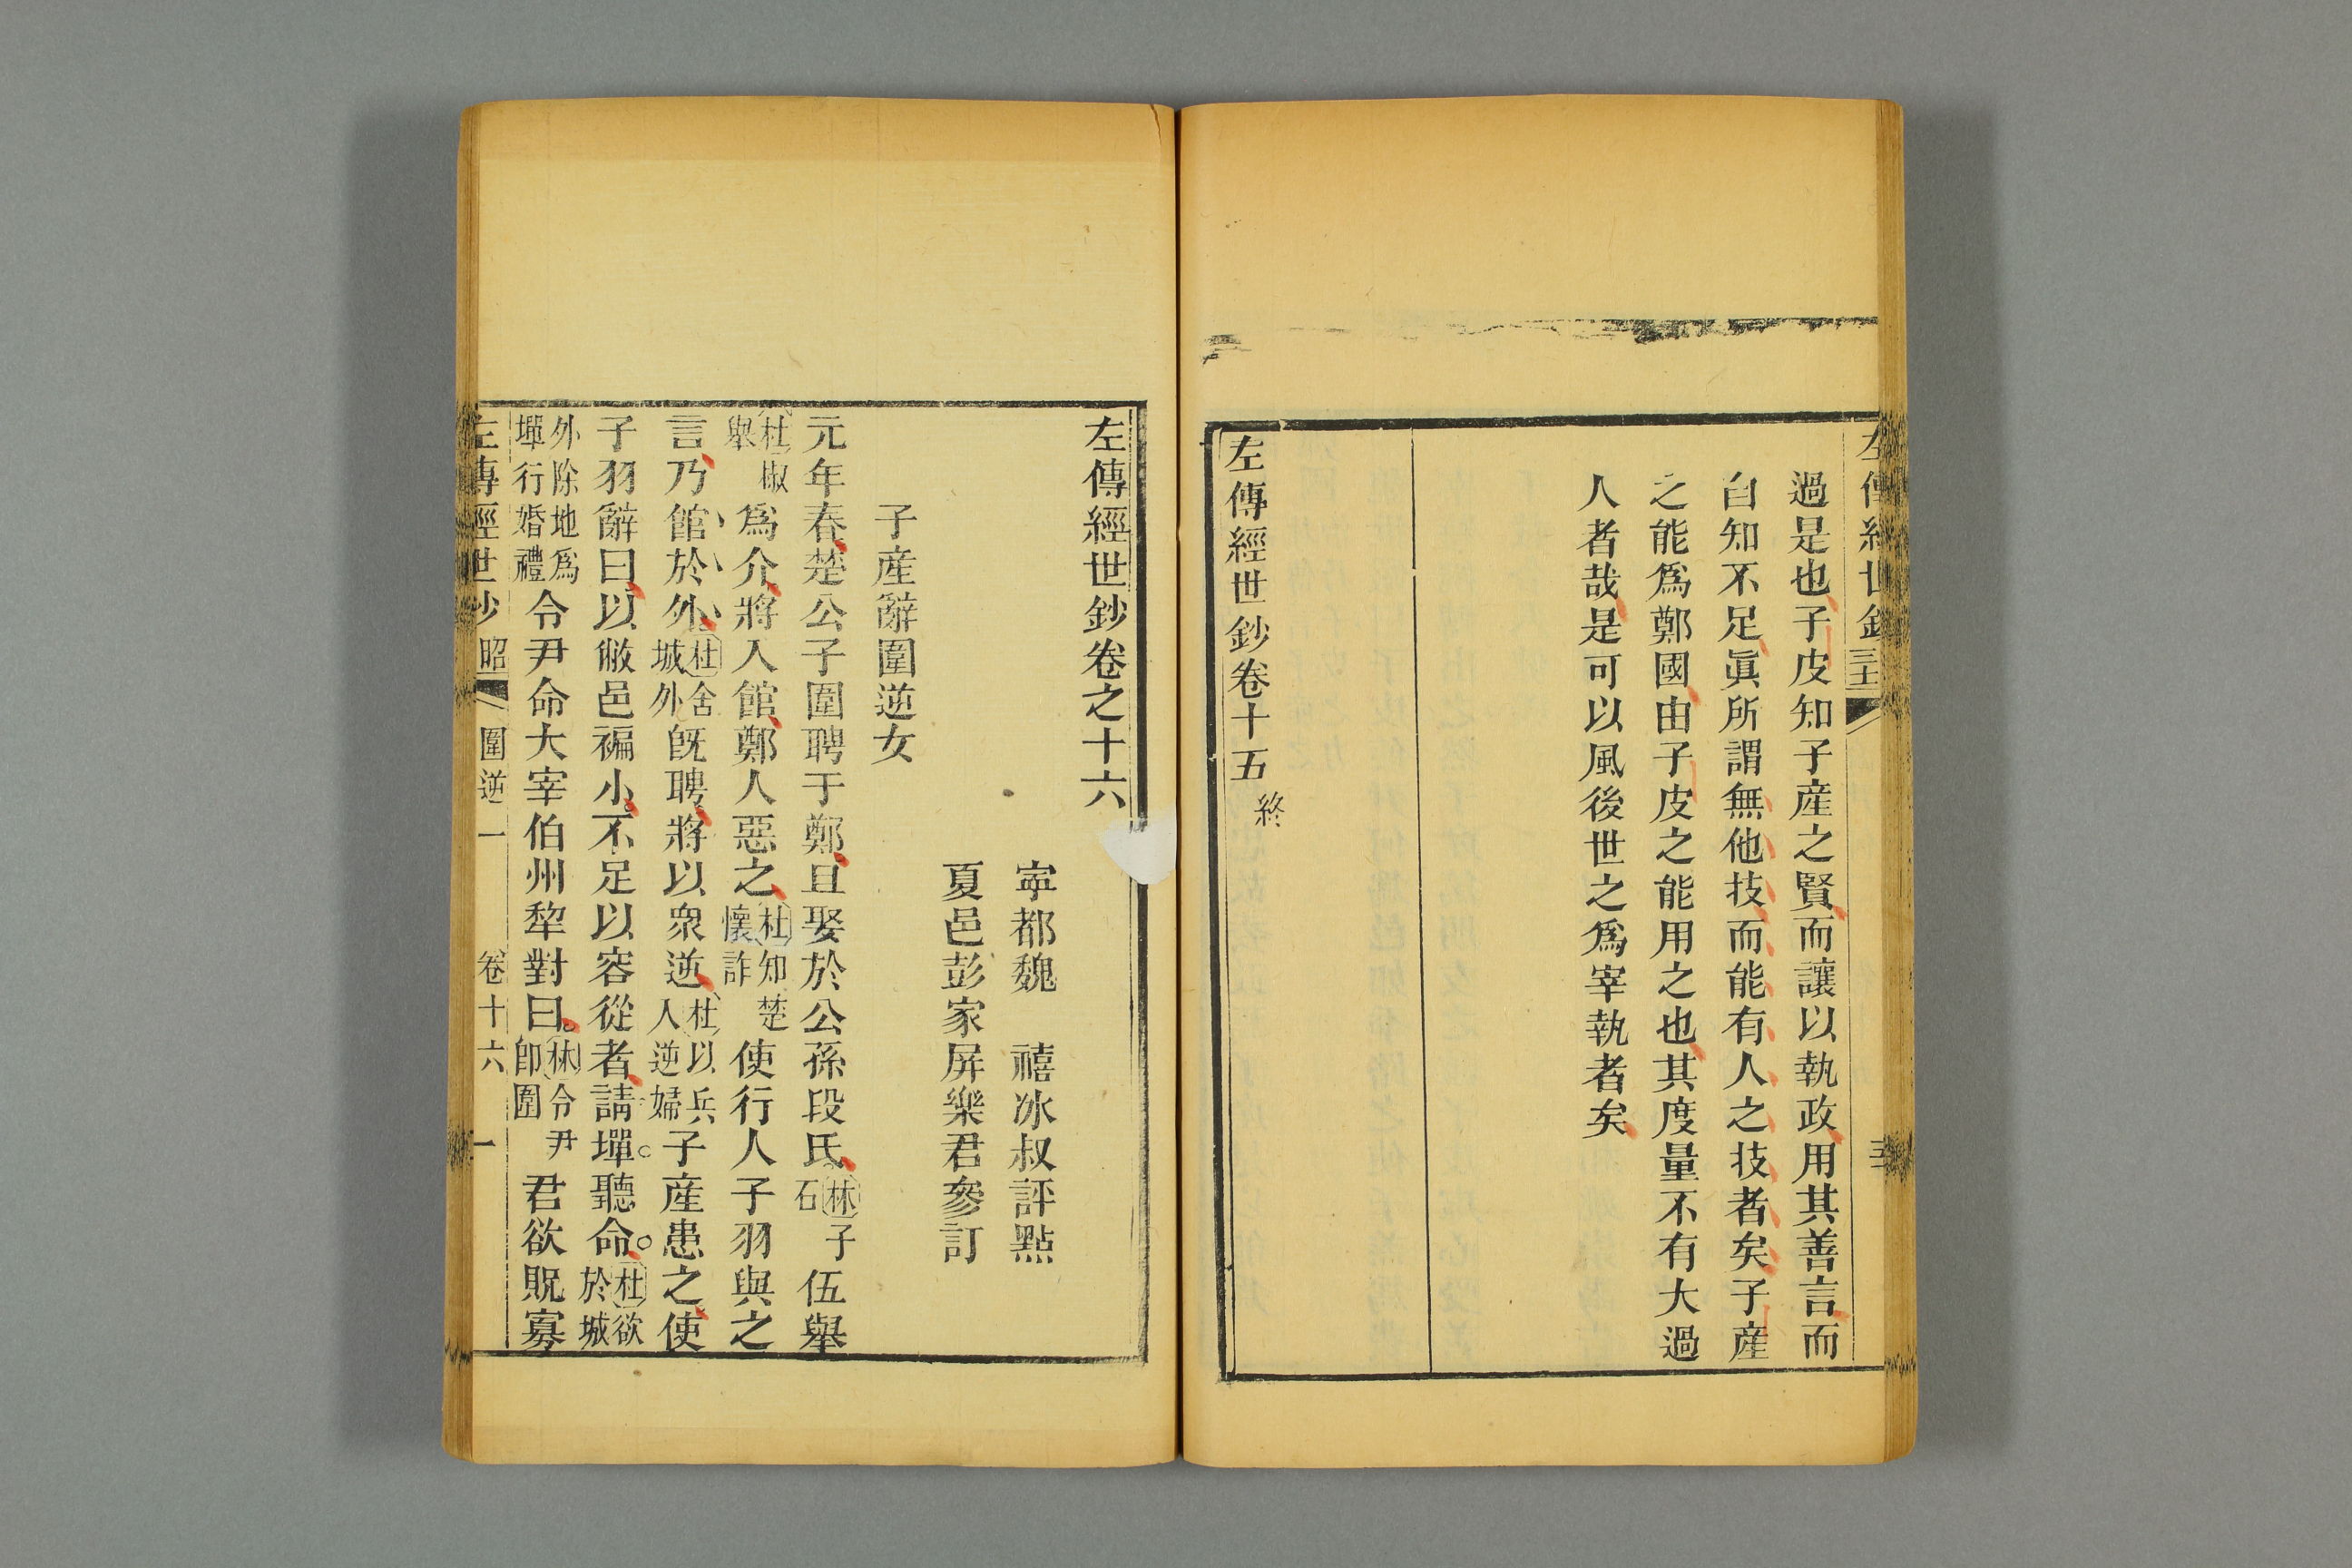 左傳經世鈔
過是也子皮知子產之賢而讓以執政用其善言而
自知不足眞所謂無他技而能有人之技者矣子產
之能爲鄭國由子皮之能用之也其度量不有大過
人者哉是可以風後世之爲宰執者矣
左傳經世鈔卷十五 終
左傳經世鈔卷之十六
寧都魏 禧冰叔評點
夏邑彭家屏樂君參訂
子產辭圍逆女
元年春楚公子圍聘于鄭且娶於公孫段氏林子石伍舉
杜椒舉爲介將入館鄭人惡之杜知楚懷詐使行人子羽與之
言乃館於外杜舍城外旣聘將以衆逆杜以兵人逆婦子產患之使
子羽辭曰以敝邑褊小不足以容從者請墠聽命杜欲於城
外除地爲墠行婚禮令尹命大宰伯州犂對曰林令尹卽圍君欲貺寡
左傳經世鈔 昭 圍逆一 卷十六 一